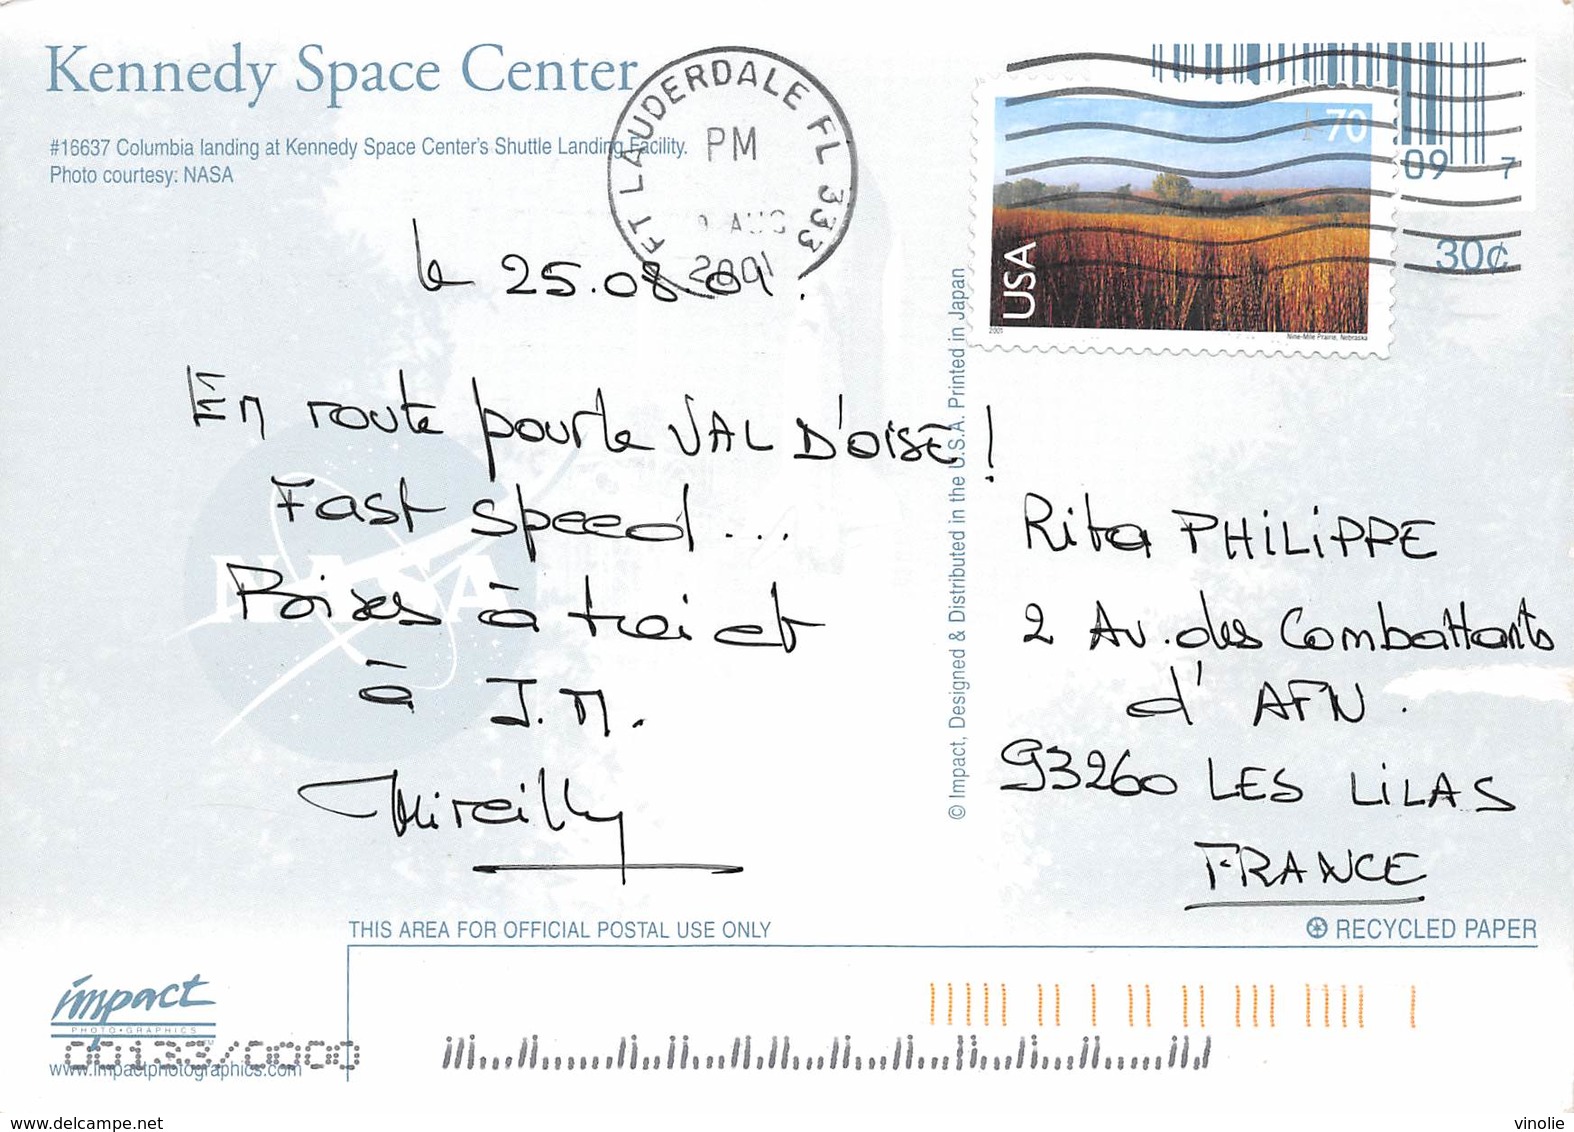 Kennedy Space Center
#16637 Columbia landing at Kennedy Space Center's Shuttle Landing Facility.
Photo courtesy: NASA
FT LAUDERDALE FL 333
PM
AUG
2001
70
USA
2001
Nine-Mile Prairie, Nebraska
09 7
30¢
le 25.08.01.
En route pour le VAL D'OISE !
Fast speed...
Bises à toi et
à J.M.
Mireilly
© Impact, Designed & Distributed in the U.S.A. Printed in Japan
Rita PHILIPPE
2 Av. des Combattants
d'AFN.
93260 LES LILAS
FRANCE
NASA
THIS AREA FOR OFFICIAL POSTAL USE ONLY
RECYCLED PAPER
impact
PHOTO•GRAPHICS
00133/0000
www.impactphotographics.com
www.delcampe.net
vinolie